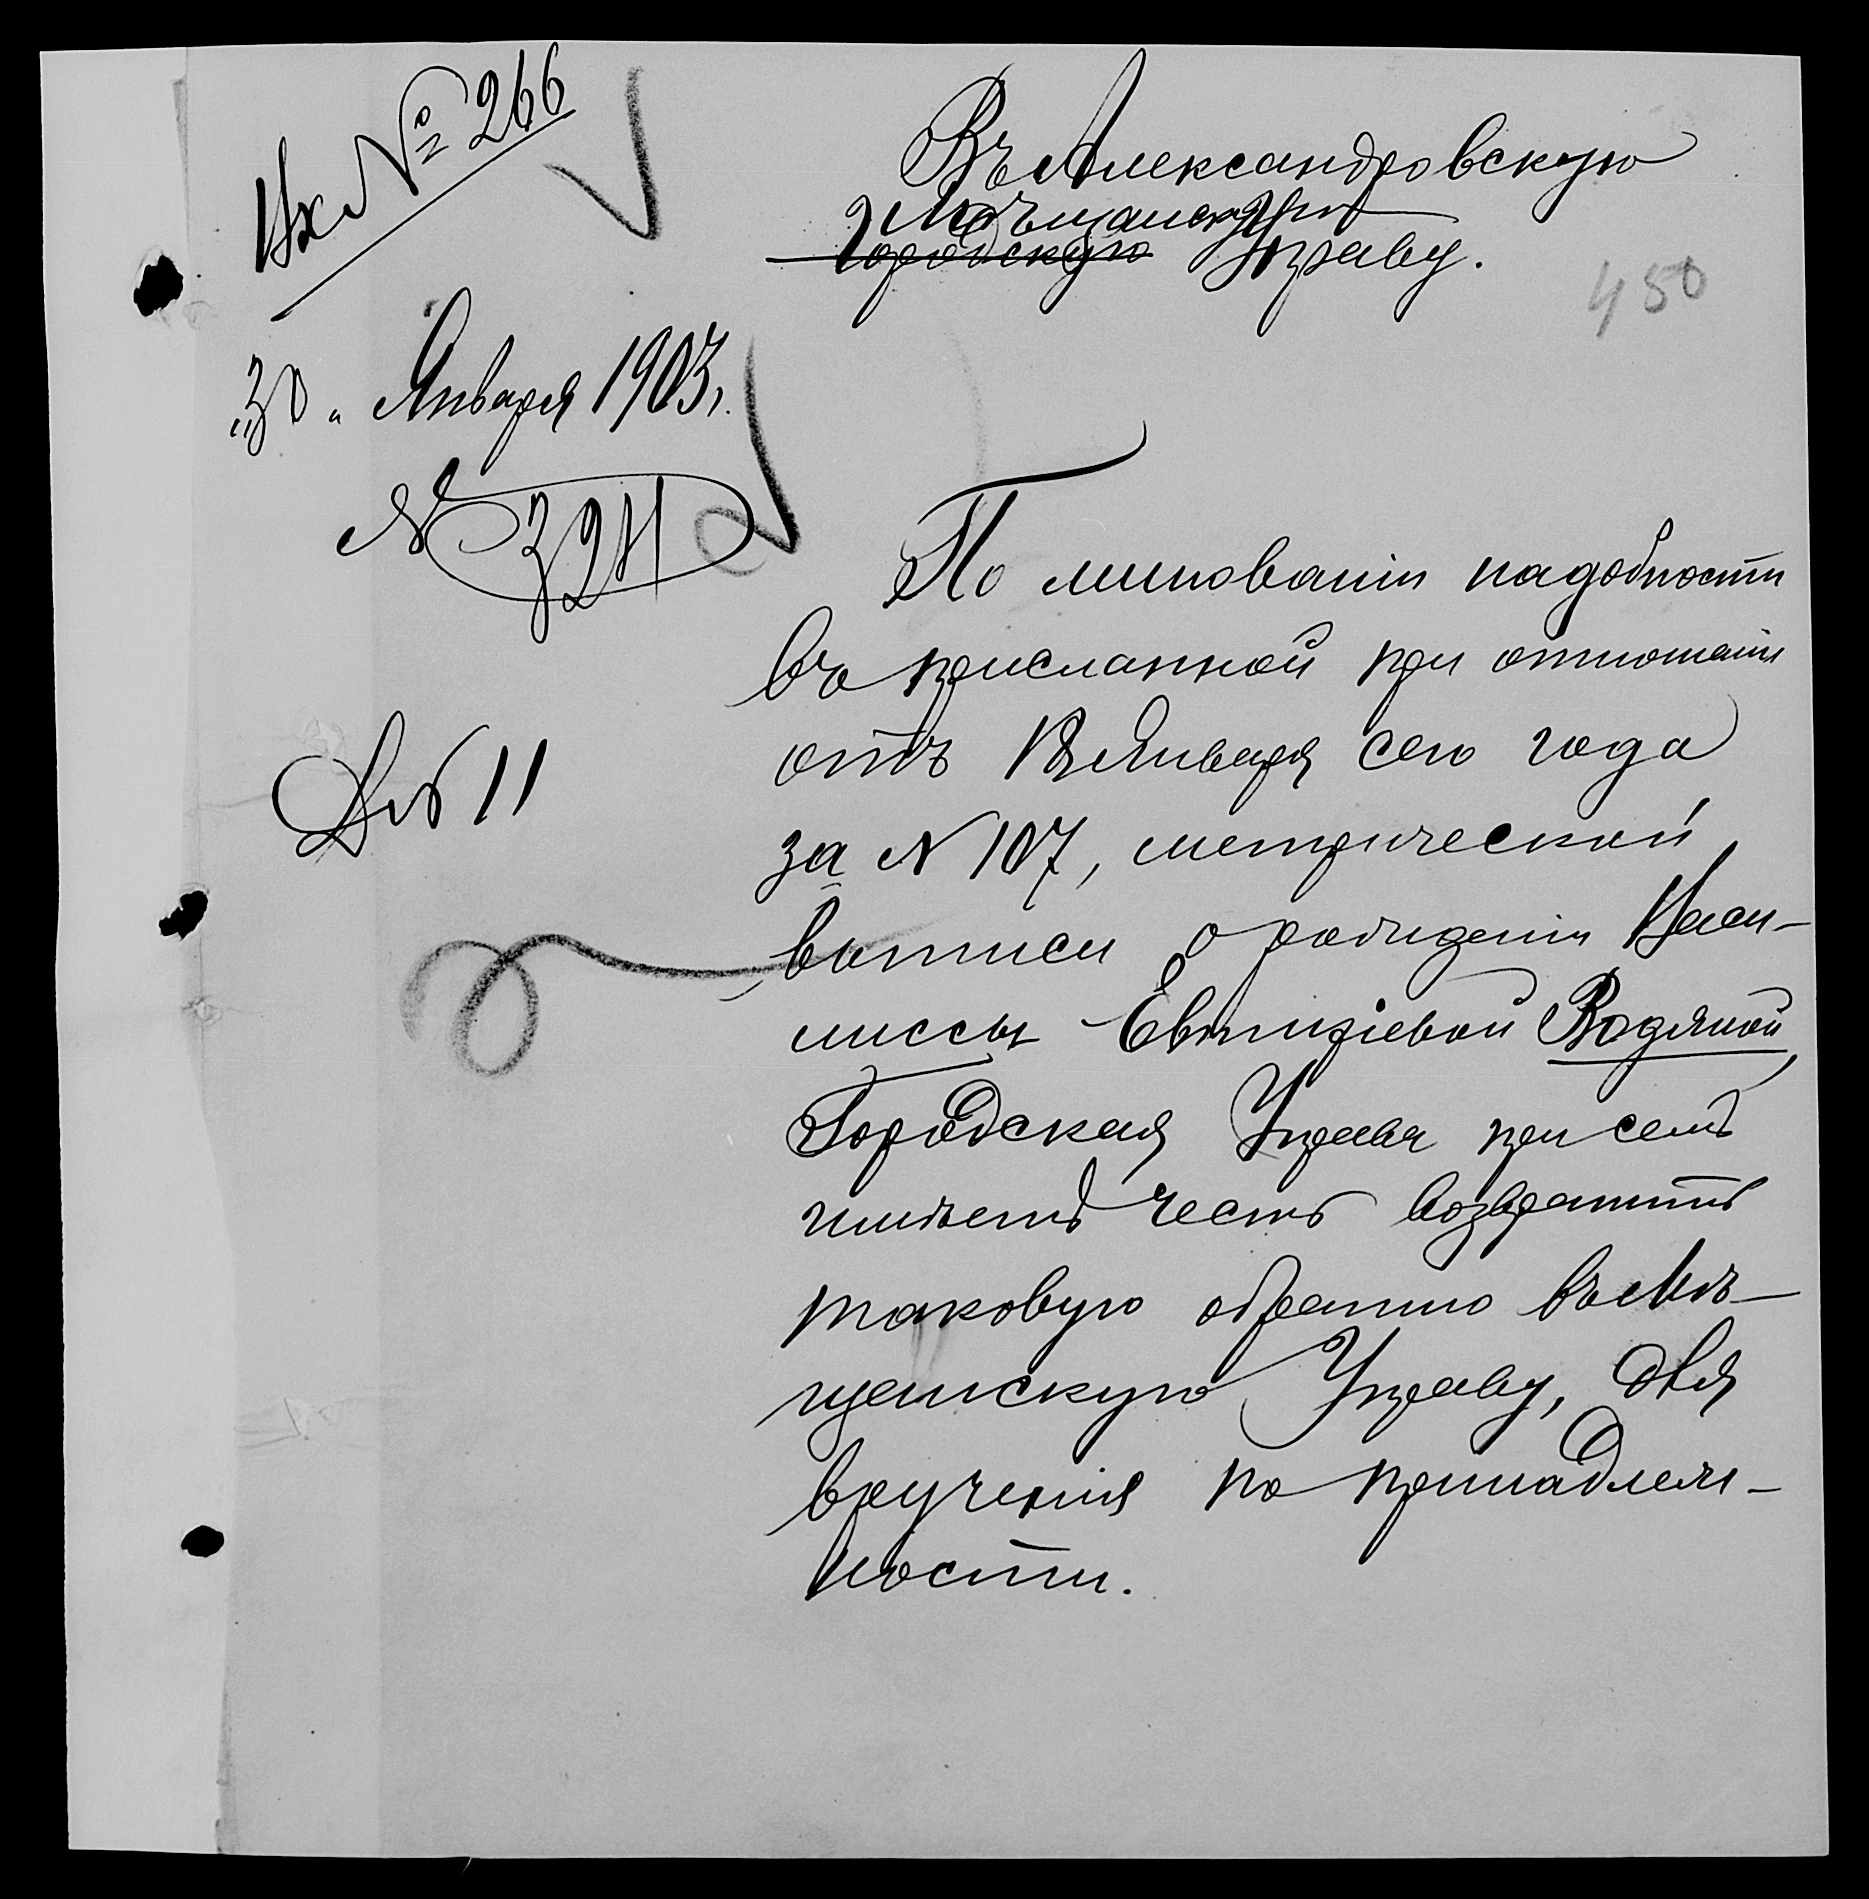 Вх № 266
Въ Александровскую
Мѣщанскую
городскую Управу.
450
„30„ Января 1903 г.
№ 324
По минованіи надобности
въ присланной при отношеніи
отъ 18 Января сего года
за № 107, метрической
выписи о рожденіи Васи-
лиссы Евтихіевой Водяной,
Городская Управа при семъ
имѣетъ честь возвратить
таковую обратно въ Мѣ-
щанскую Управу, для
врученія по принадлеж-
ности.